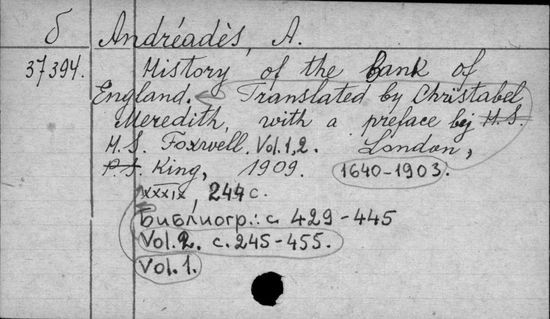 б Andréadès, A.
37394. History of the bank of
England. Translated by Christabel
Meredith, with a preface by H.S.
H.S. Foxwell. Vol.1,2. London,
P.S. King, 1909. 1640-1903.
XXXIX, 244 с.
Библиогр.: с. 429-445
Vol.2. с.245-455.
Vol.1.